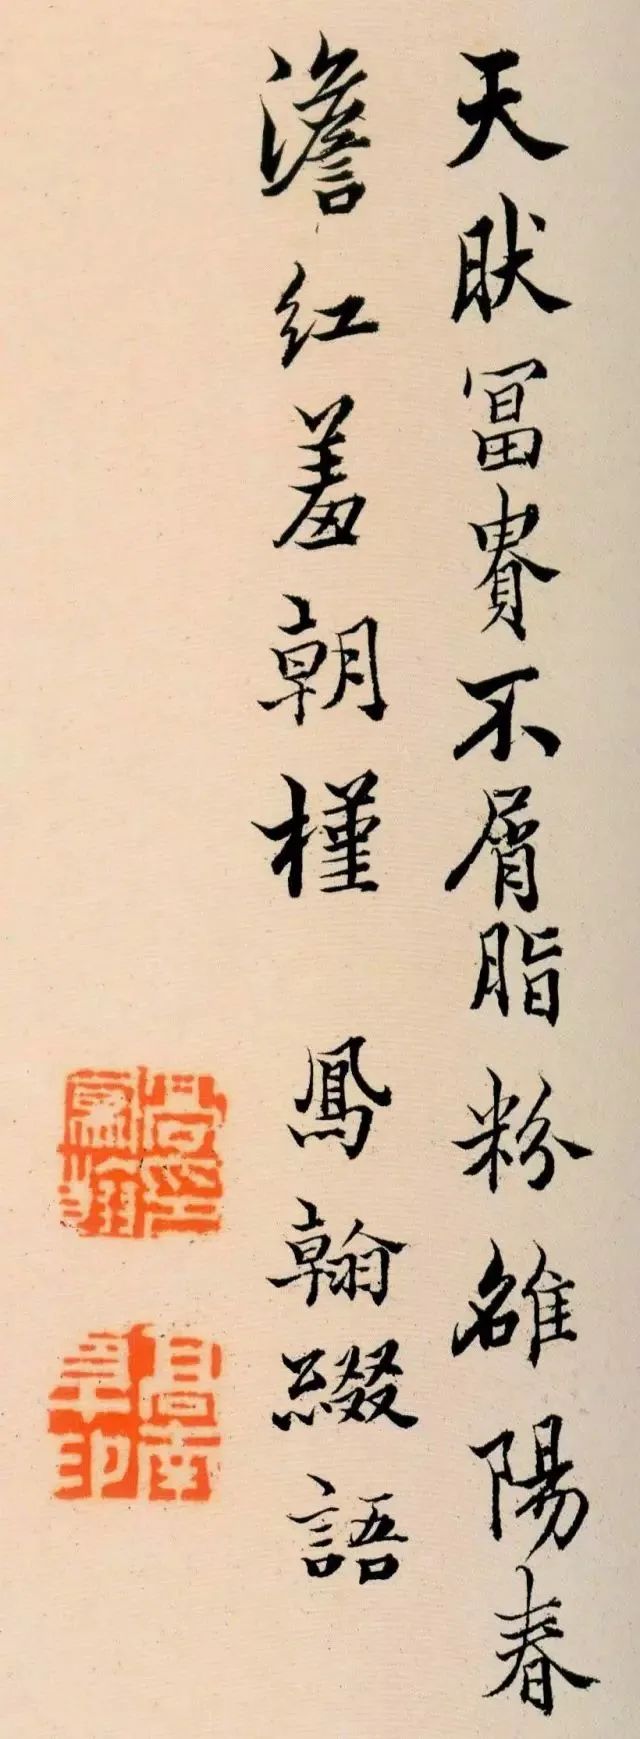 天然冨貴不屑脂粉雒陽春
澹紅羞朝槿 鳳翰綴語